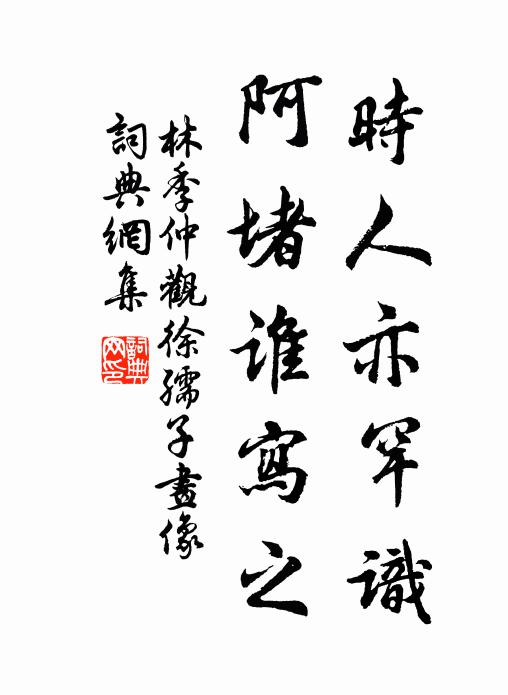 時人亦罕識
阿堵誰寫之
林季仲觀徐孺子畫像
詞典網集
詞典網印